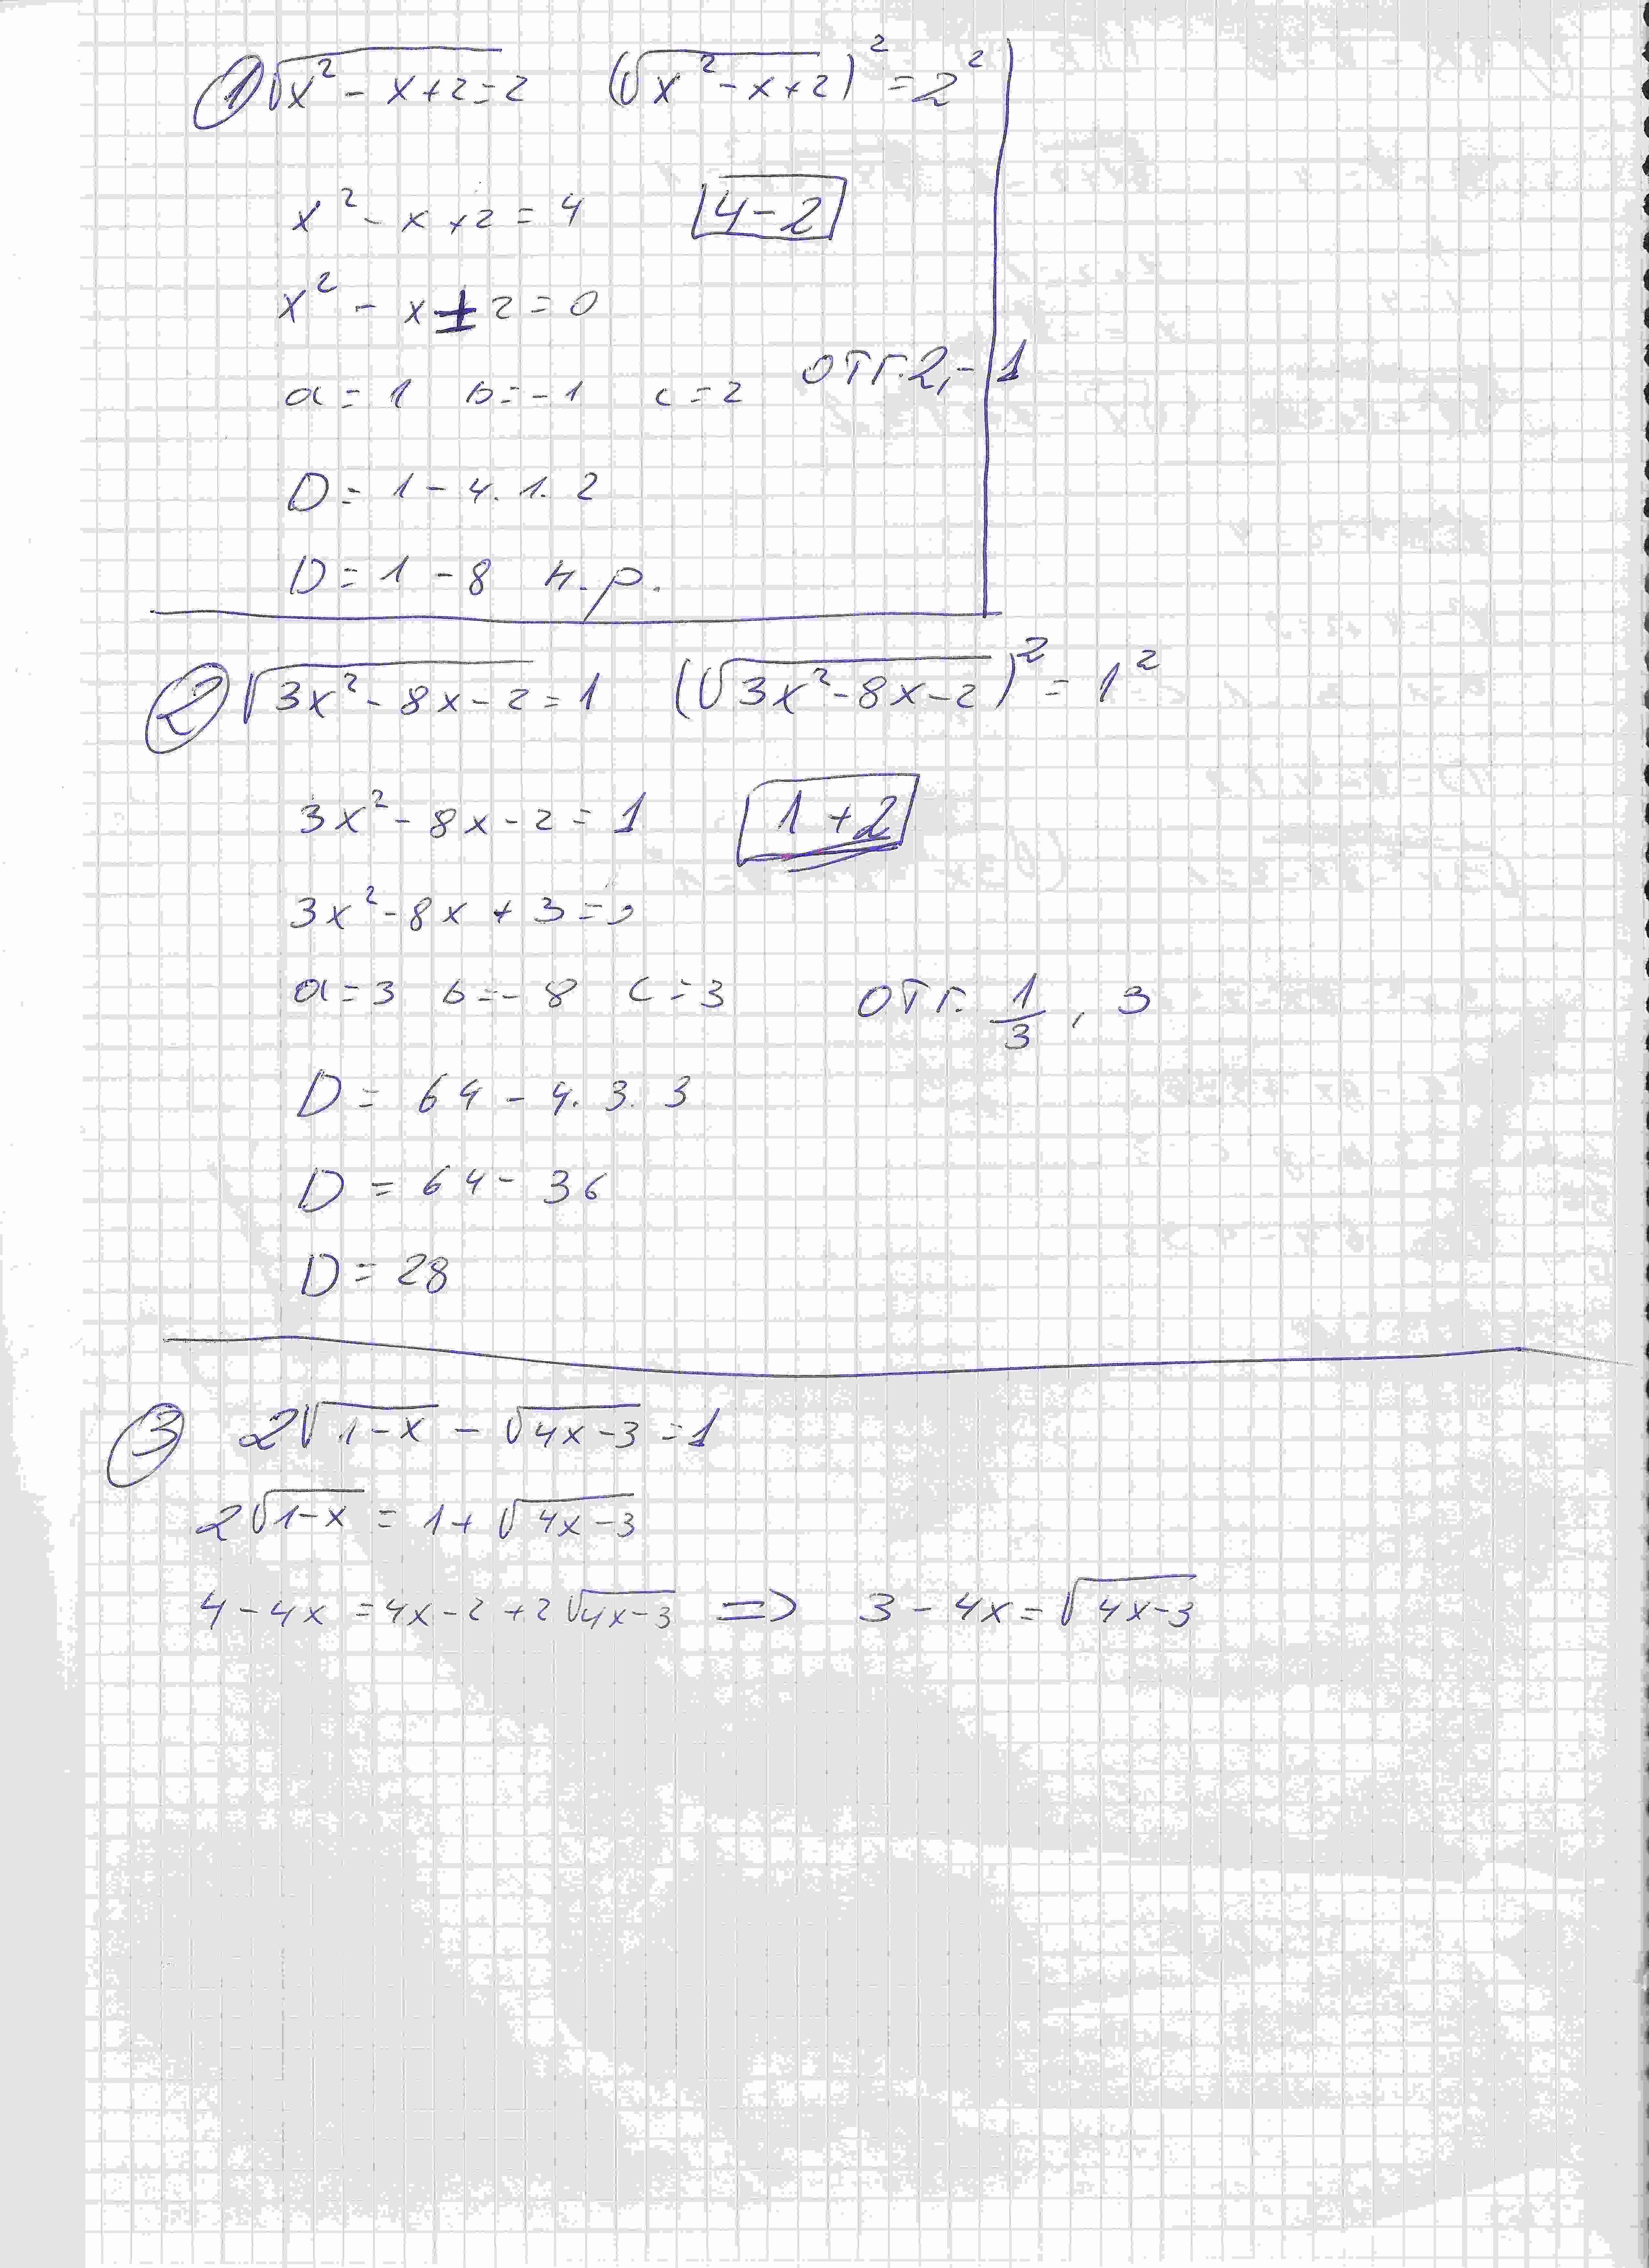 ① √x² - x + 2 = 2 (√x² - x + 2)² = 2²
x² - x + 2 = 4 4 - 2
x² - x ± 2 = 0
a = 1 b = -1 c = 2 отг. 2, -1
D = 1 - 4. 1. 2
D = 1 - 8 н.р.
② √3x² - 8x - 2 = 1 (√3x² - 8x - 2)² = 1²
3x² - 8x - 2 = 1 1 + 2
3x² - 8x + 3 = 0
a = 3 b = - 8 c = 3 отг. 1/3, 3
D = 64 - 4. 3. 3
D = 64 - 36
D = 28
③ 2√1-x - √4x-3 = 1
2√1-x = 1 + √4x-3
4 - 4x = 4x - 2 + 2√4x-3 => 3 - 4x = √4x-3